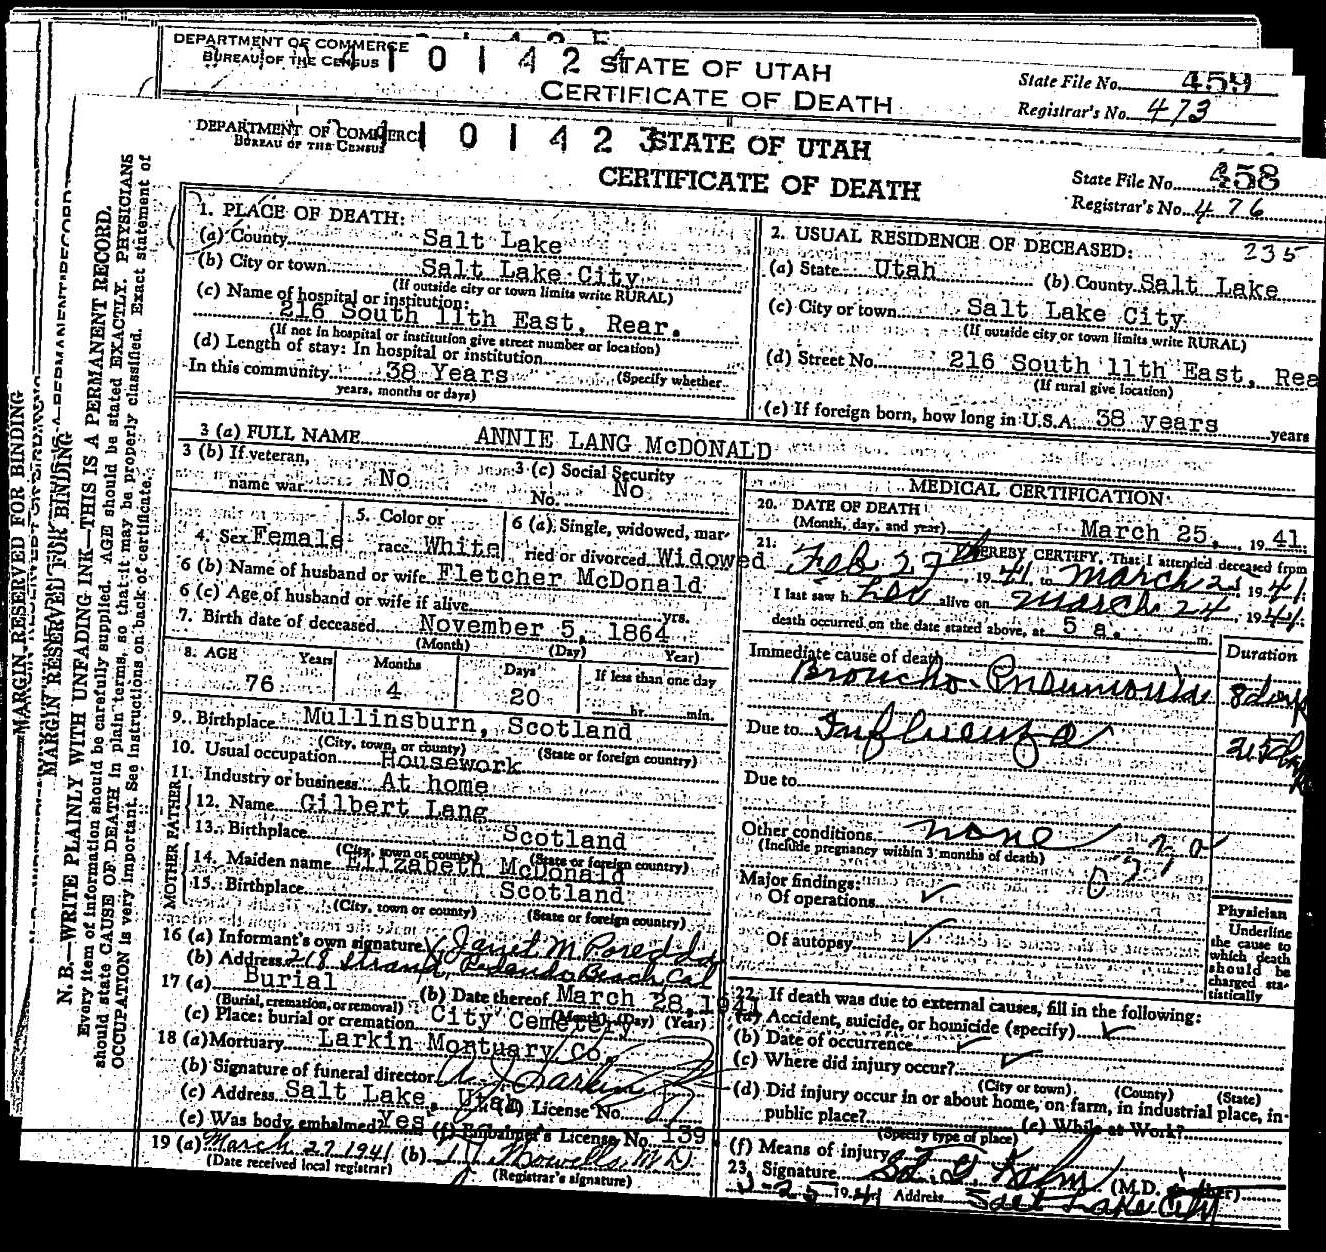 DEPARTMENT OF COMMERCE
BUREAU OF THE CENSUS
4101424
STATE OF UTAH
CERTIFICATE OF DEATH
State File No. 459
Registrar's No. 473
DEPARTMENT OF COMMERC
BUREAU OF THE CENSUS
4101423
STATE OF UTAH
CERTIFICATE OF DEATH
State File No. 458
Registrar's No. 476
MARGIN RESERVED FOR BINDING
MARGIN RESERVED FOR BINDING
N. B.—WRITE PLAINLY WITH UNFADING INK—THIS IS A PERMANENT RECORD.
Every item of information should be carefully supplied. AGE should be stated EXACTLY. PHYSICIANS
should state CAUSE OF DEATH in plain terms, so that it may be properly classified. Exact statement of
OCCUPATION is very important. See instructions on back of certificate.
1. PLACE OF DEATH:
(a) County Salt Lake
(b) City or town Salt Lake City
(If outside city or town limits write RURAL)
(c) Name of hospital or institution:
216 South 11th East, Rear.
(If not in hospital or institution give street number or location)
(d) Length of stay: In hospital or institution
In this community 38 Years (Specify whether
years, months or days)
2. USUAL RESIDENCE OF DECEASED: 235
(a) State Utah (b) County Salt Lake
(c) City or town Salt Lake City
(If outside city or town limits write RURAL)
(d) Street No. 216 South 11th East, Rea
(If rural give location)
(e) If foreign born, how long in U.S.A. 38 years years
3 (a) FULL NAME ANNIE LANG McDONALD
3 (b) If veteran, name war No
3 (c) Social Security No. No
4. Sex Female
5. Color or race White
6 (a) Single, widowed, married or divorced Widowed
6 (b) Name of husband or wife Fletcher McDonald
6 (c) Age of husband or wife if alive yrs.
7. Birth date of deceased November 5, 1864
(Month) (Day) Year)
8. AGE Years Months Days If less than one day
76 4 20 hr. min.
9. Birthplace Mullinsburn, Scotland
(City, town, or county) (State or foreign country)
10. Usual occupation Housework
11. Industry or business At home
FATHER
12. Name Gilbert Lang
13. Birthplace Scotland
(City, town or county) (State or foreign country)
MOTHER
14. Maiden name Elizabeth McDonald
15. Birthplace Scotland
(City, town or county) (State or foreign country)
16 (a) Informant's own signature X Janet M
(b) Address 218 Strand, Redondo Beach Cal
17 (a) Burial (b) Date thereof March 28, 1941
(Burial, cremation, or removal) (Month) (Day) (Year)
(c) Place: burial or cremation City Cemetery
18 (a) Mortuary Larkin Mortuary Co.
(b) Signature of funeral director A. J. Larkin
(c) Address Salt Lake, Utah (d) License No.
(e) Was body embalmed? Yes (f) Embalmer's License No. 139
19 (a) March 27 1941 (b)
(Date received local registrar) (Registrar's signature)
MEDICAL CERTIFICATION
20. DATE OF DEATH
(Month, day, and year) March 25, 1941.
21. I HEREBY CERTIFY, That I attended deceased from
Feb 27th, 1941 to March 25 1941.
I last saw her alive on March 24, 1941.
death occurred on the date stated above, at 5 a. m.
Duration
Immediate cause of death
Broncho-Pneumonia 8 days
Due to Influenza
Due to
Other conditions none
(Include pregnancy within 3 months of death)
Major findings:
Of operations ✓
Of autopsy ✓
Physician
Underline
the cause to
which death
should be
charged sta-
tistically
22. If death was due to external causes, fill in the following:
(a) Accident, suicide, or homicide (specify) ✓
(b) Date of occurrence ✓
(c) Where did injury occur? ✓
(City or town) (County) (State)
(d) Did injury occur in or about home, on farm, in industrial place, in
public place? (e) While at Work?
(Specify type of place)
(f) Means of injury
23. Signature Sol. G. Kahn (M.D. or other)
3-25 1941 Address Salt Lake City